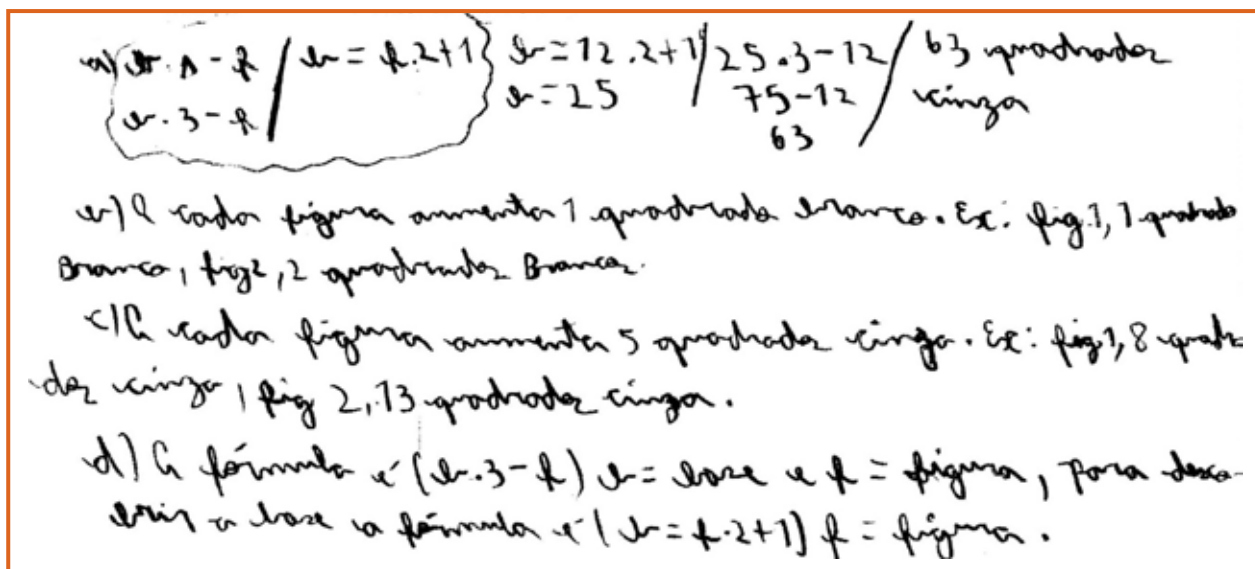 a) b. A - f / b = f.2+1 } b = 12.2+1 / 25.3-12 / 63 quadrados
b.3-f / b = 25 / 75-12 / cinza
63
b) A cada figura aumenta 1 quadrado branco. Ex: fig.1, 1 quadrado
Branco, fig2, 2 quadrados Brancos.
c) A cada figura aumenta 5 quadrados cinza. Ex: fig.1, 8 quadra
dos cinza, fig 2, 13 quadrados cinza.
d) A fórmula é (b.3-f) b = base e f = figura, para desco-
brir a base a fórmula é (b = f.2+1) f = figura.